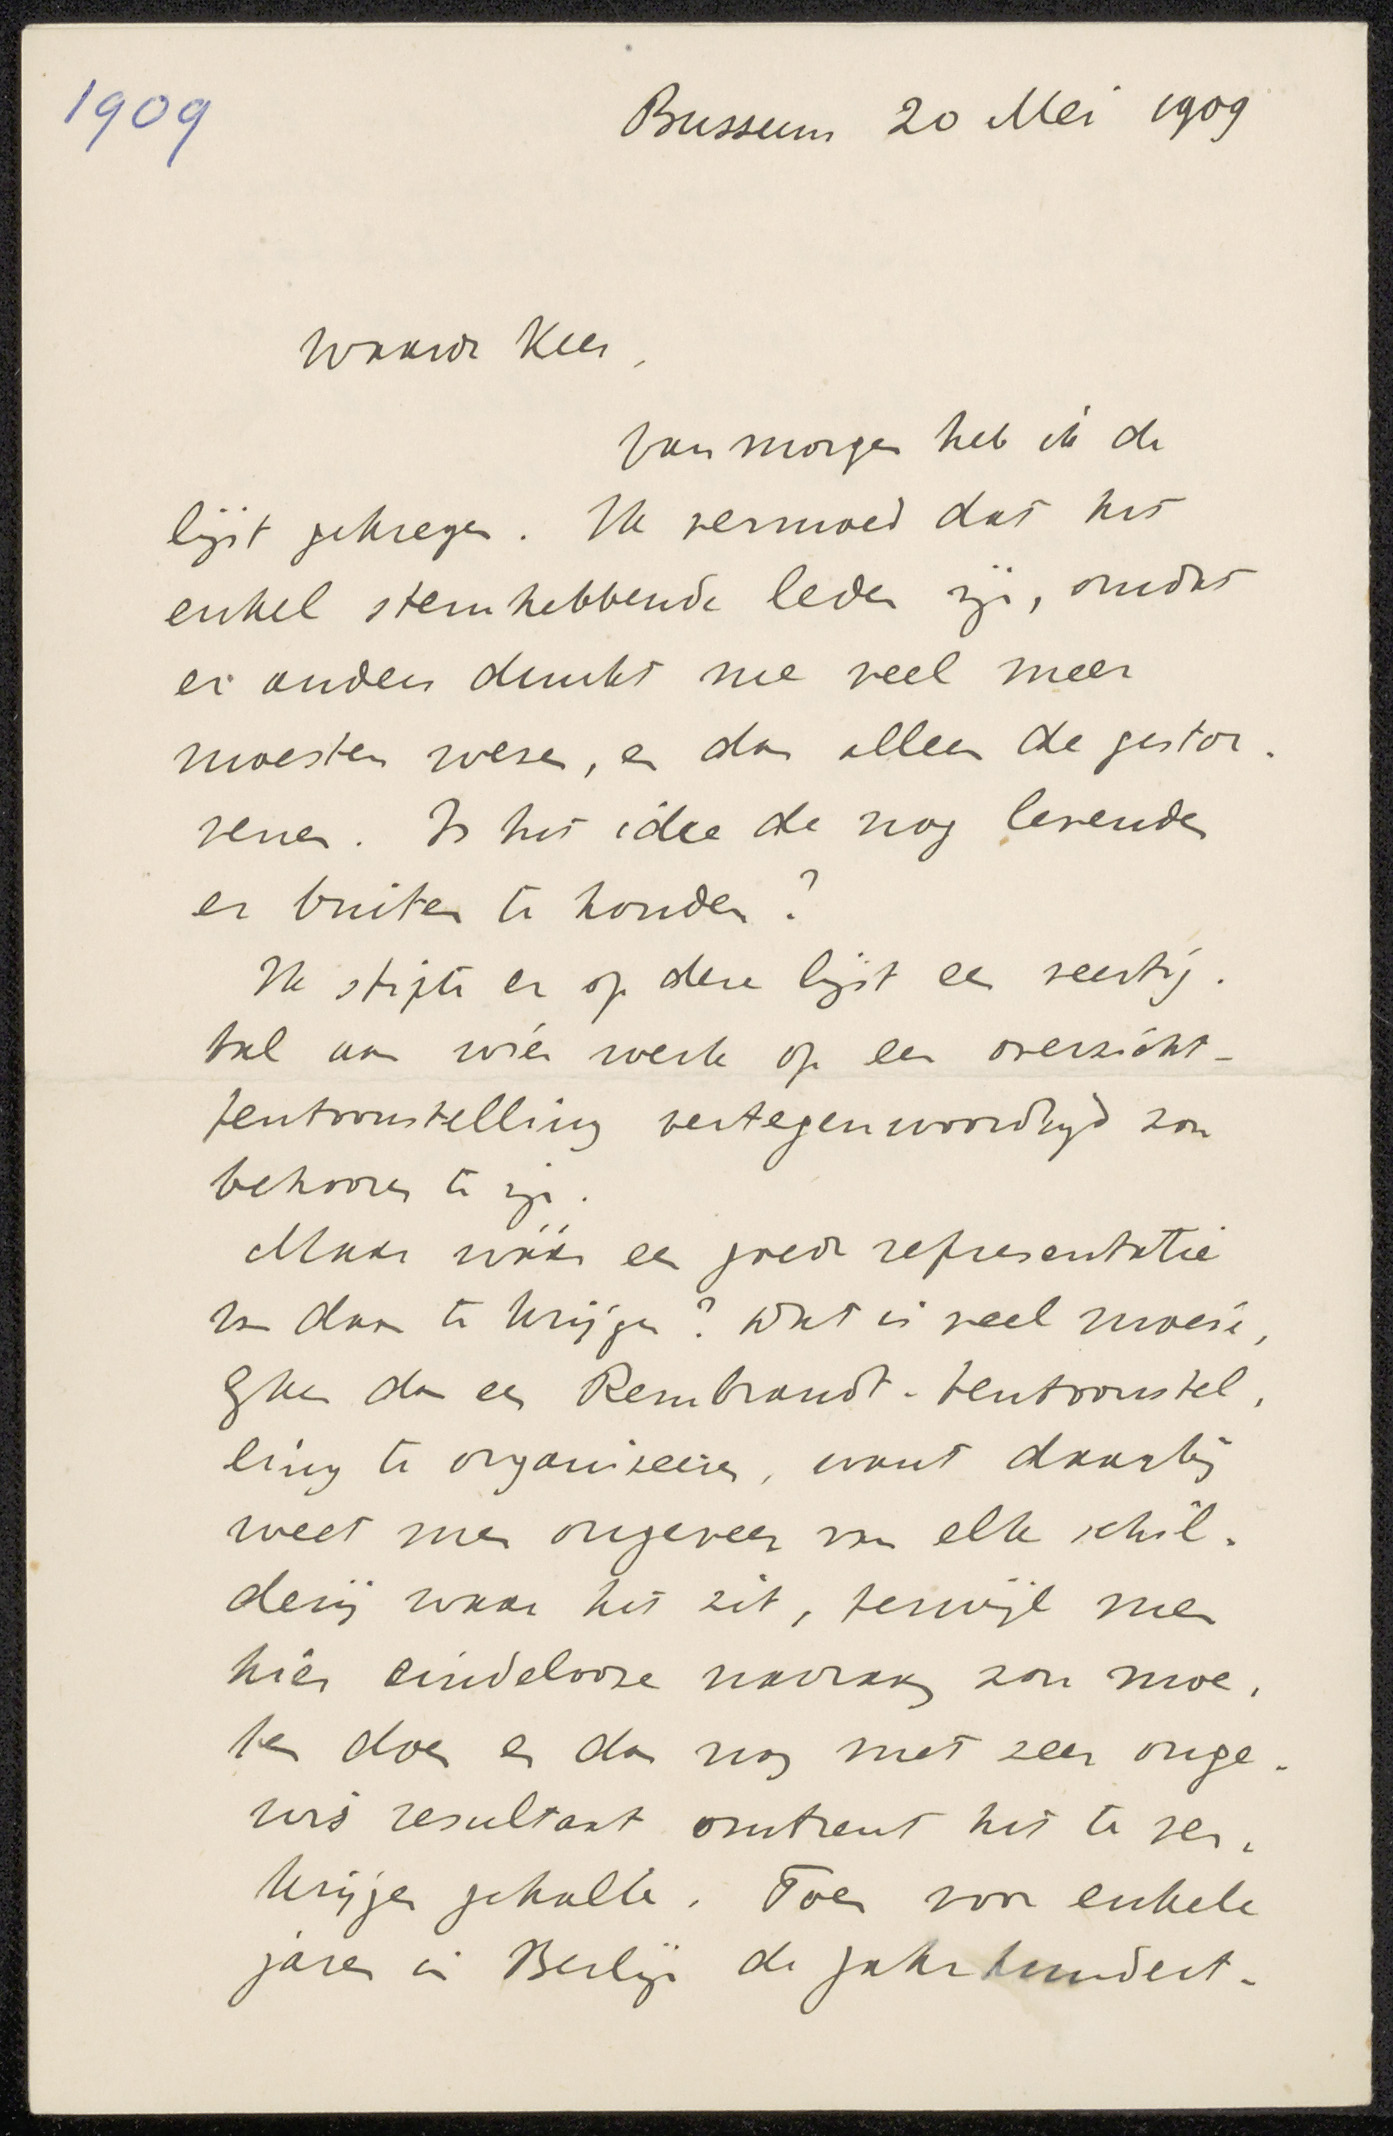 1909
Bussum 20 Mei 1909
Waarde Kees,
Van morgen heb ik de
lijst gekregen. Ik vermoed dat het
enkel stemhebbende leden zijn, omdat
er anders dunkt me veel meer
moesten wezen, en dan alleen de gestor-
venen. Is het idee de nog levenden
er buiten te houden?
Ik stipte er op deze lijst een veertig-
tal aan wier werk op een overzicht-
tentoonstelling vertegenwoordigd zou
behooren te zijn.
Maar wáár een goede representatie
van daan te krijgen? Dat is veel moeie-
lijker dan een Rembrandt-tentoonstel-
ling te organiseeren, want daarbij
weet men ongeveer van elke schil-
derij waar het zit, terwijl men
hier eindelooze navraag zou moe-
ten doen en dan nog met zeer onge-
wis resultaat omtrent het te ver-
krijgen gehalte. Toen voor enkele
jaren in Berlijn de Jahrhundert-